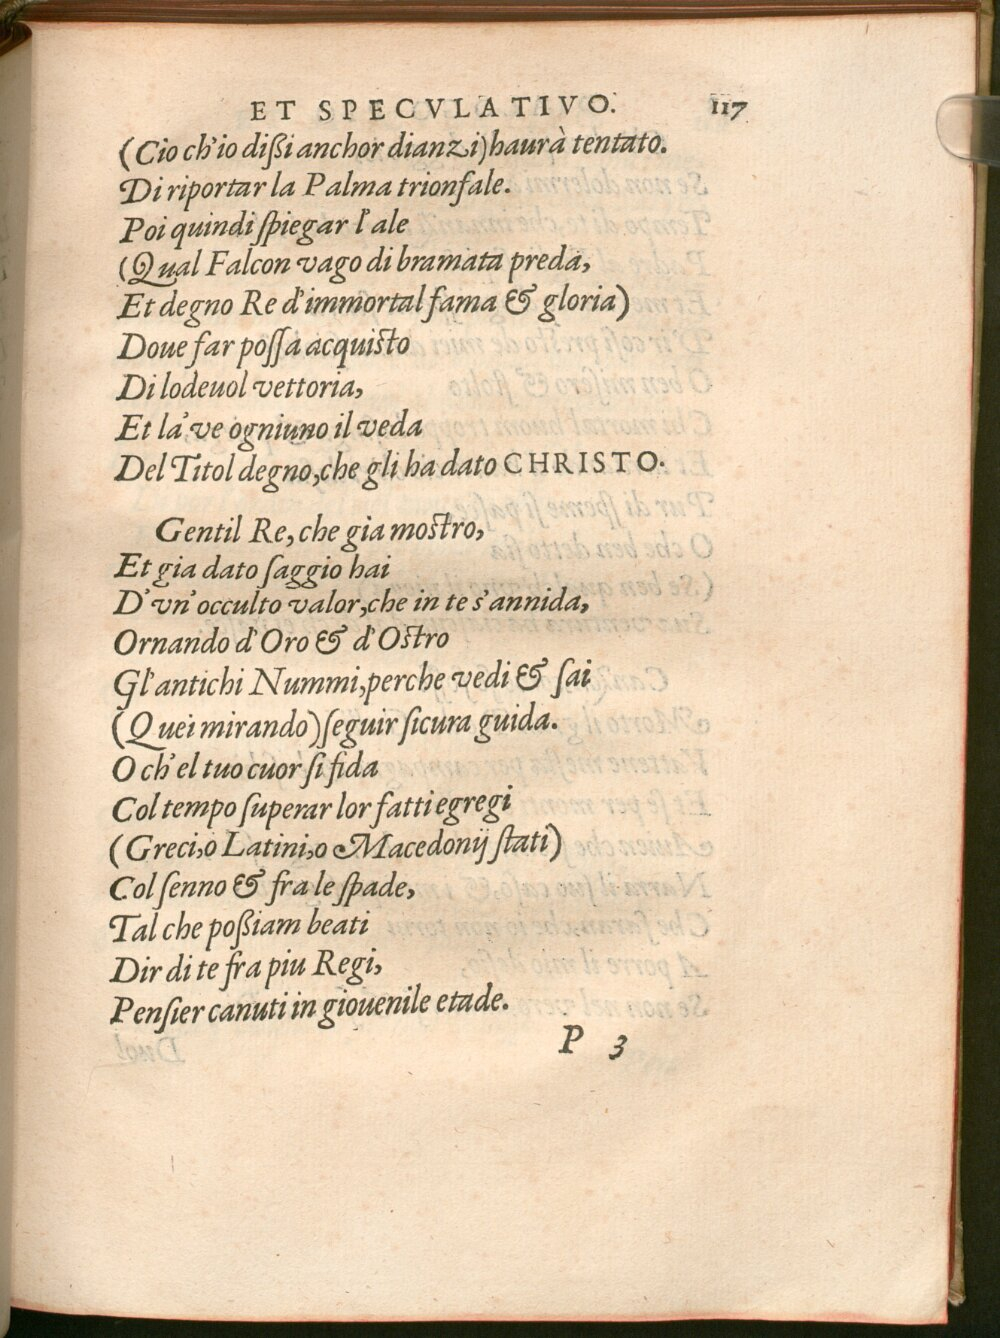 ET SPECVLATIVO. 117
(Cio ch'io dißi anchor dianzi) haurà tentato.
Di riportar la Palma trionfale.
Poi quindi ſpiegar l'ale
(Qual Falcon vago di bramata preda,
Et degno Re d'immortal fama & gloria)
Doue far poſſa acquiſto
Di lodeuol vettoria,
Et la've ogniuno il veda
Del Titol degno, che gli ha dato CHRISTO.
Gentil Re, che gia moſtro,
Et gia dato ſaggio hai
D'vn'occulto valor, che in te s'annida,
Ornando d'Oro & d'Oſtro
Gl'antichi Nummi, perche vedi & ſai
(Quei mirando) ſeguir ſicura guida.
O ch'el tuo cuor ſi fida
Col tempo ſuperar lor fatti egregi
(Greci, o Latini, o Macedonij ſtati)
Col ſenno & fra le ſpade,
Tal che poßiam beati
Dir di te fra piu Regi,
Penſier canuti in giouenile etade.
P 3